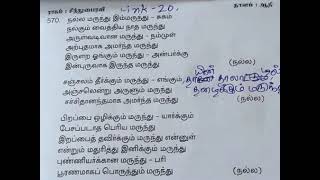 ராகம் : சிந்துபைரவி தாளம் : ஆதி
Link-20.
570. நல்ல மருந்து இம்மருந்து - சுகம்
நல்கும் வைத்திய நாத மருந்து
அருள்வடிவான மருந்து - நம்முள்
அற்புதமாக அமர்ந்த மருந்து
இருள்ற ஓங்கும் மருந்து - அன்பர்க்கு
இன்புருவாக இருந்த மருந்து (நல்ல)
சஞ்சலம் தீர்க்கும் மருந்து - எங்
அஞ்சலென்று அருளும் மருந்து
சச்சிதானந்தமாக அமர்ந்த மருந்து (நல்ல)
பிறப்பை ஒழிக்கும் மருந்து - யார்க்கும்
பேசப்படாத பெரிய மருந்து
இறப்பைத் தவிர்க்கும் மருந்து என்னுள்
என்றும் மதுரித்து இனிக்கும் மருந்து
புண்ணியர்க்கான மருந்து - பரி
பூரணமாகப் பொருந்தும் மருந்து (நல்ல)